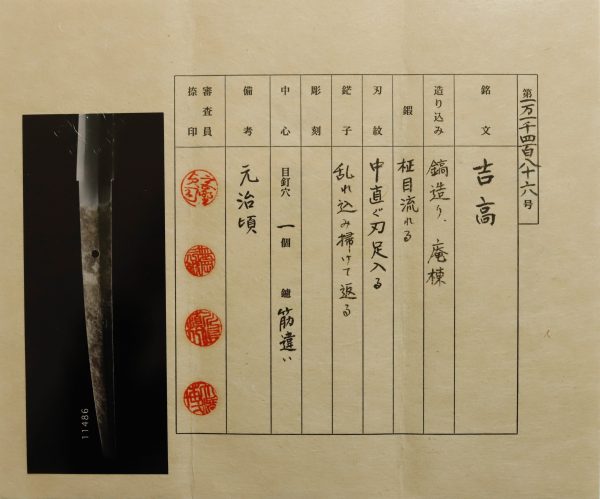 第一万一千四百八十六号
銘文 吉高
造り込み 鎬造り、庵棟
鍛 柾目流れる
刃紋 中直ぐ刃足入る
鋩子 乱れ込み掃けて返る
彫刻
中心 目釘穴 一個 鑢 筋違い
備考 元治頃
審査員捺印
11486